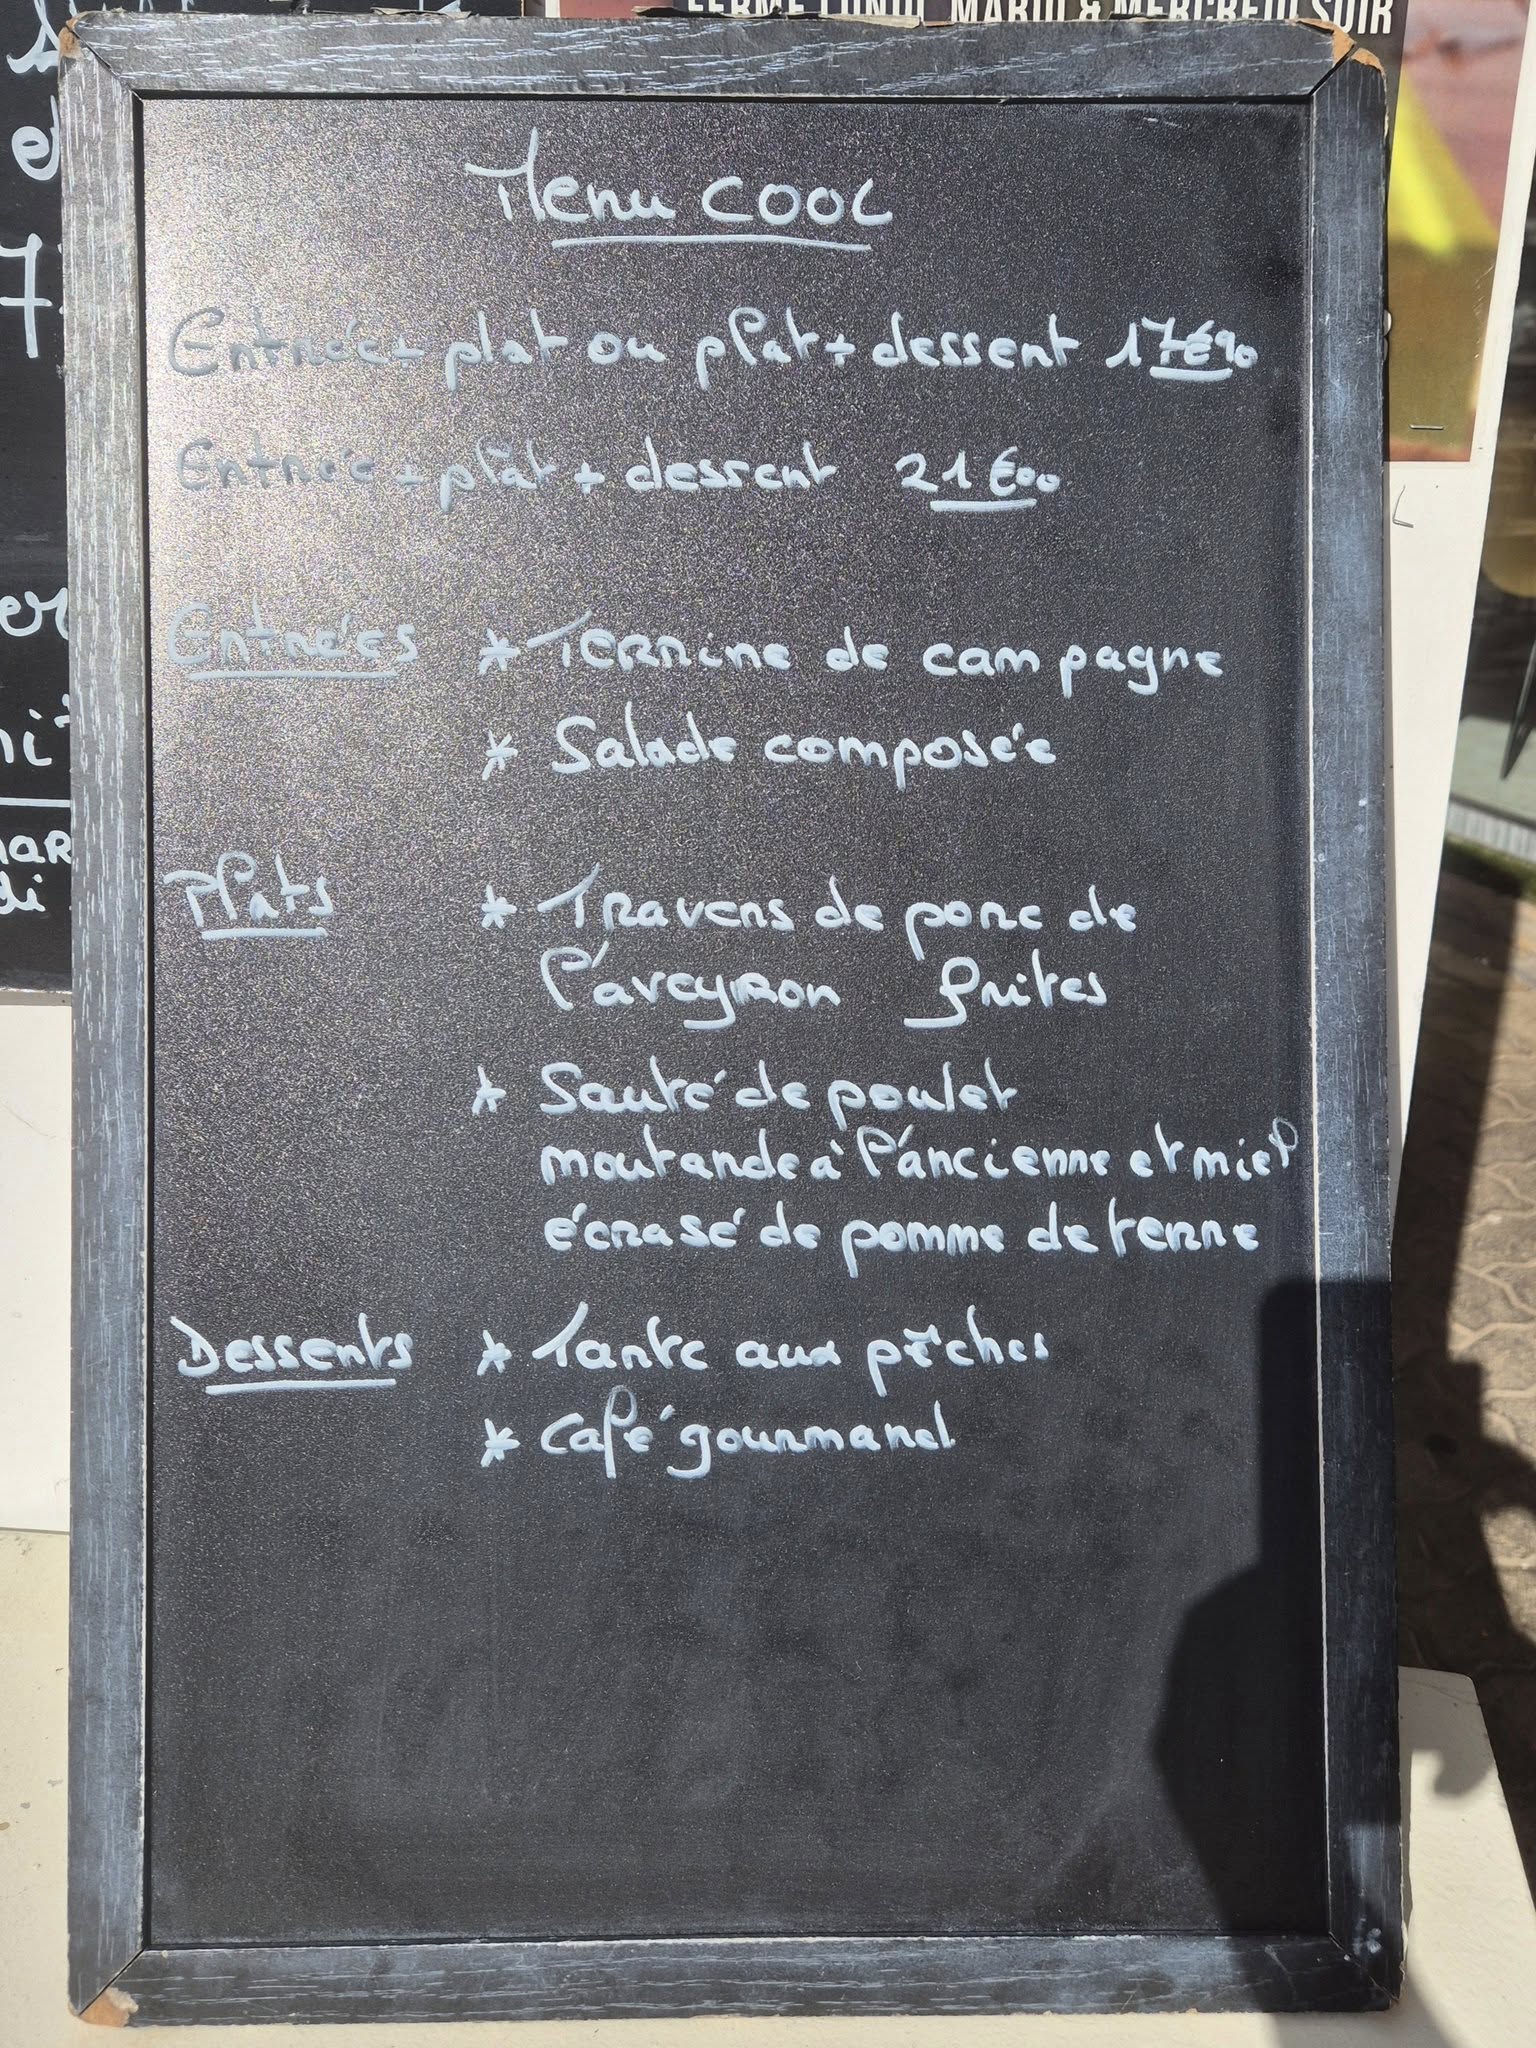 FERMÉ LUNDI, MARDI & MERCREDI SOIR
Menu COOL
Entrée + plat ou plat + dessert 17€90
Entrée + plat + dessert 21€00
Entrées * Terrine de campagne
* Salade composée
Plats * Travers de porc de
l'aveyron frites
* Sauté de poulet
moutarde à l'ancienne et miel
écrasé de pomme de terre
Desserts * Tarte aux pêches
* Café gourmand